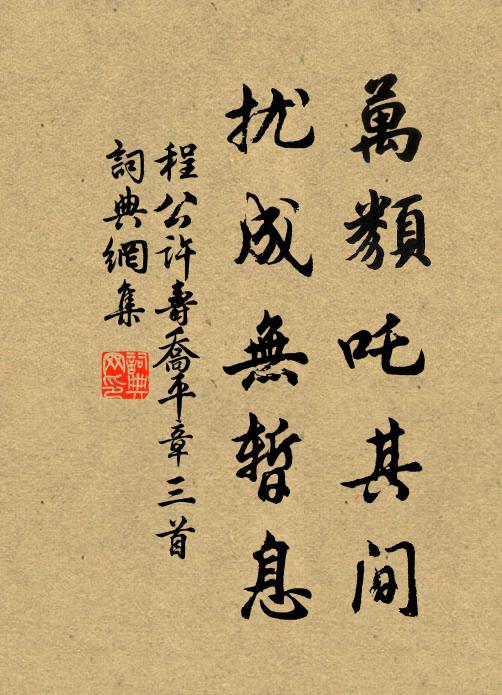 萬類吒其间
扰成無暫息
程公許壽喬平章三首
詞典網集
詞典網印